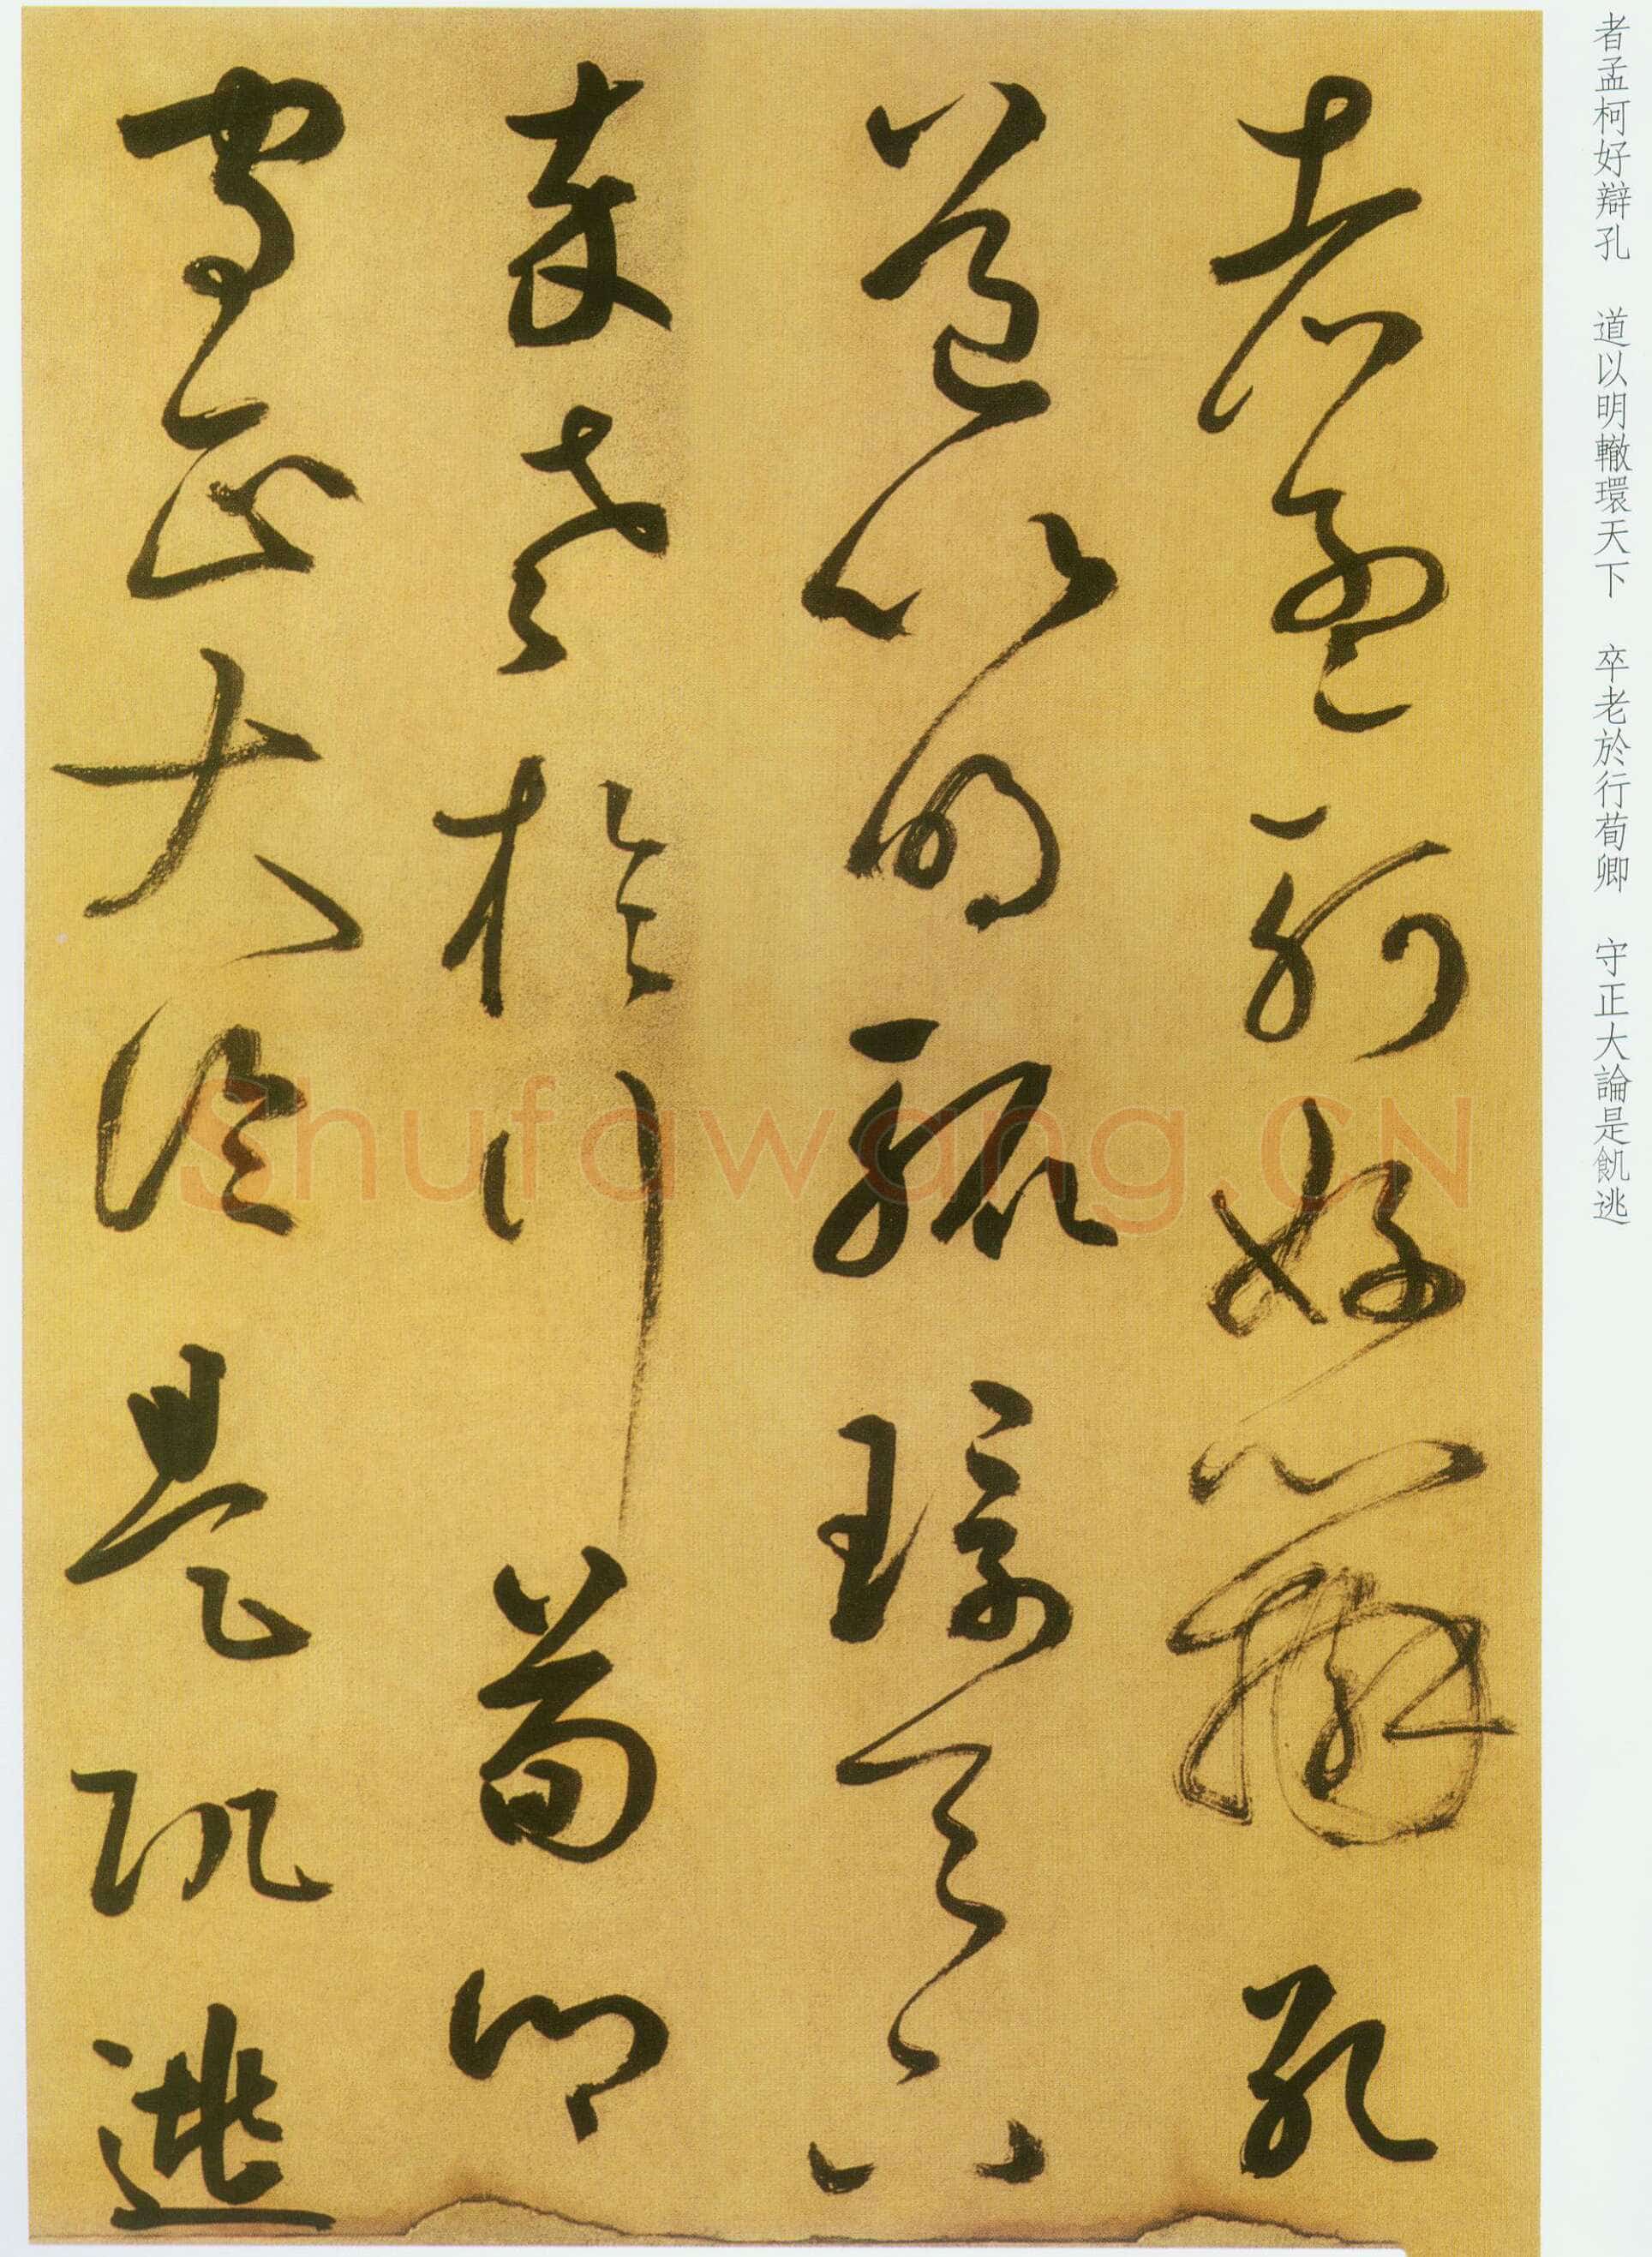 者孟柯好辯孔　道以明轍環天下　卒老於行荀卿　守正大論是飢逃
者孟軻好辯孔
道以明轍環天下
卒老於行荀卿
守正大論是飢逃
Shufawang.CN